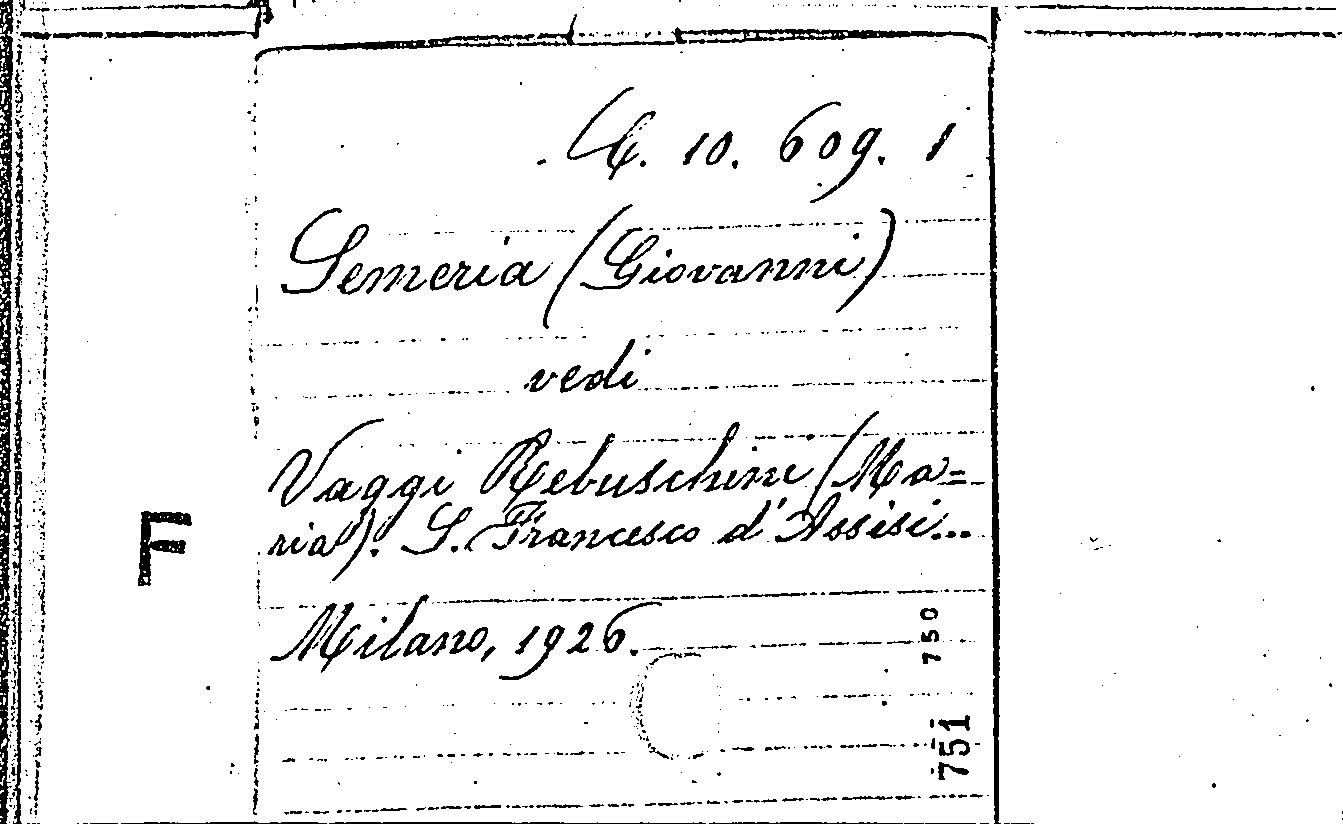 C. 10. 609. 1
Semeria (Giovanni)
vedi
Vaggi Rebuschini (Ma=
ria). S. Francesco d'Assisi...
Milano, 1926.
F
750
751